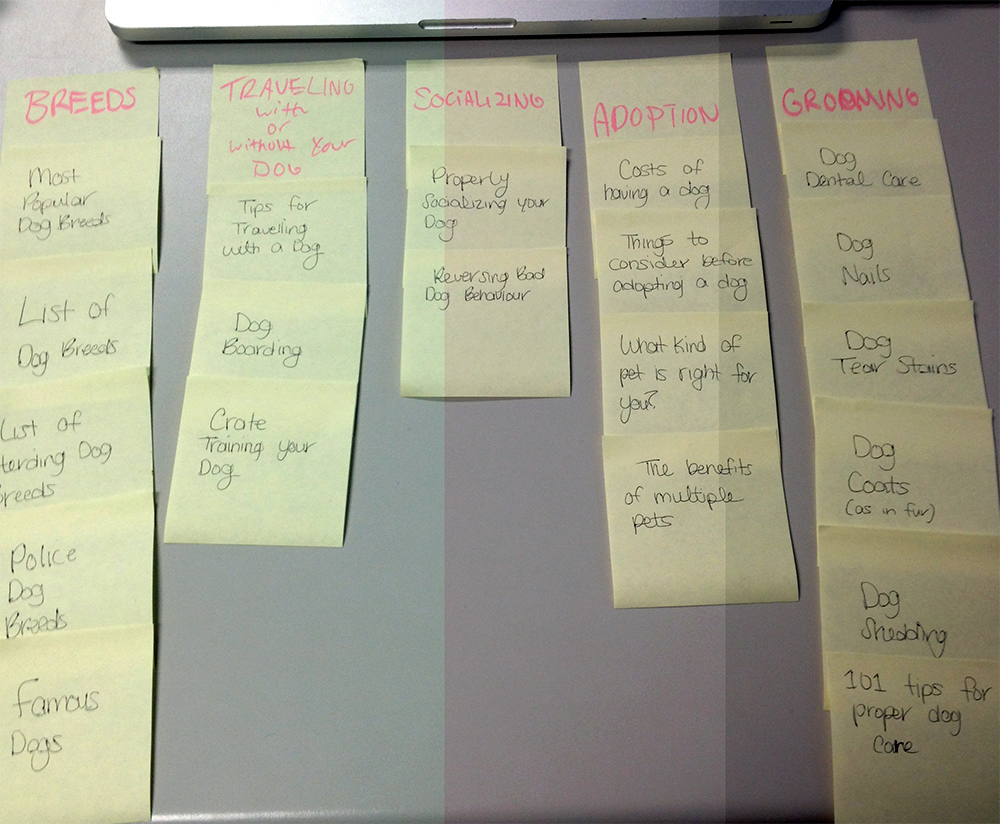 BREEDS
Most
Popular
Dog Breeds
List of
Dog Breeds
List of
Herding Dog
Breeds
Police
Dog
Breeds
Famous
Dogs
TRAVELING
with
or
without Your
DOG
Tips for
Travelling
with a Dog
Dog
Boarding
Crate
Training your
Dog
SOCIALIZING
Properly
Socializing your
Dog
Reversing Bad
Dog Behaviour
ADOPTION
Costs of
having a dog
Things to
consider before
adopting a dog
What kind of
pet is right for
you?
The benefits
of multiple
pets
GROOMING
Dog
Dental Care
Dog
Nails
Dog
Tear Stains
Dog
Coats
(as in fur)
Dog
Shedding
101 tips for
proper dog
care